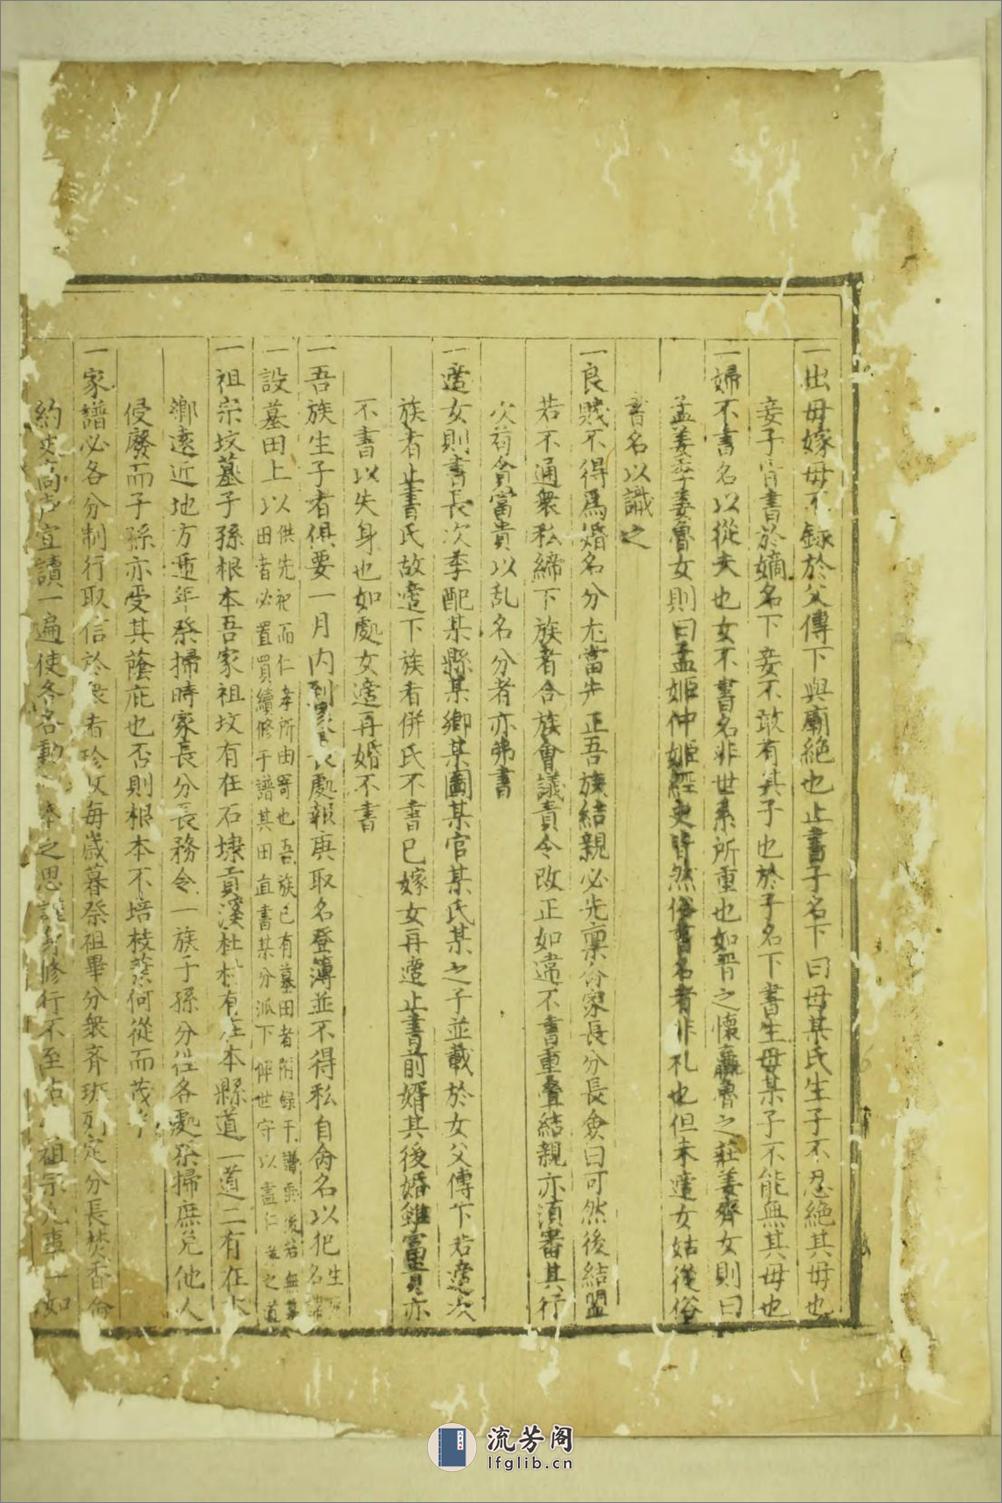 一出母嫁母不錄於父傳下與廟絕也止書子名下曰母某氏生子不忍絕其母也
妾子皆書於嫡名下妾不敢有其子也於子名下書生母某子不能無其母也
一婦不書名以從夫也女不書名非世系所重也如晉之懷嬴魯之莊姜齊女則曰
孟姜季姜魯女則曰孟姬仲姬經史皆然俗書名者非礼也但未適女姑從俗
書名以識之
一良賤不得爲婚名分尤當先正吾族結親必先禀分家長分長僉曰可然後結盟
若不通衆私締下族者合族會議責令改正如違不書重叠結親亦須審其行
次苟貪富貴以乱名分者亦弗書
一適女則書長次季配某縣某鄉某圖某官某氏某之子並載於女父傳下若適次
族者止書氏故適下族者併氏不書已嫁女再適止書前婿其後婚雖富貴亦
不書以失身也如處女適再婚不書
一吾族生子者俱要一月内到家長處報庚取名登簿並不得私自命名以犯
一設墓田上以供先祀而仁孝所由寄也吾族已有墓田者附録于譜後若無墓
田者必置買續修于譜其田直書某分派下俾世守以盡仁孝之道
一祖宗坟墓子孫根本吾家祖坟有在石埭貢溪杜村有在本縣道一道二有在本
鄉遠近地方遞年祭掃時家長分長務令一族子孫分往各處祭掃庶免他人
侵廢而子孫亦受其蔭庇也否則根本不培枝葉何從而茂
一家譜必各分制行取信於衆者珍收每歲暮祭祖畢分衆齐班列定分長焚香侖
約史高声宣讀一遍使各名動 本之思謹身修行不至玷 祖宗凡事一如